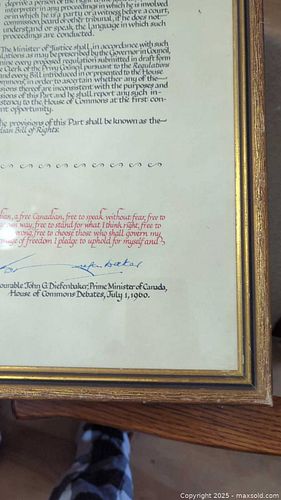 deprive a person of the right
interpreter in any proceedings in which he is involved
or in which he is a party or a witness before a court,
commission, board or other tribunal, if he does not
understand or speak the language in which such
proceedings are conducted.
The Minister of Justice shall, in accordance with such
ulations as may be prescribed by the Governor in Council,
mine every proposed regulation submitted in draft form
e Clerk of the Privy Council pursuant to the Regulations
and every Bill introduced in or presented to the House
ommons, in order to ascertain whether any of the
sions thereof are inconsistent with the purposes and
isions of this Part and he shall report any such in-
stency to the House of Commons at the first con-
nt opportunity.
he provisions of this Part shall be known as the
dian Bill of Rights.
dian, a free Canadian, free to speak without fear, free to
own way, free to stand for what I think right, free to
wrong, free to choose those who shall govern my
itage of freedom I pledge to uphold for myself and
Diefenbaker
ourable John G. Diefenbaker, Prime Minister of Canada,
House of Commons Debates, July 1, 1960.
Copyright © 2025 - maxsold.com